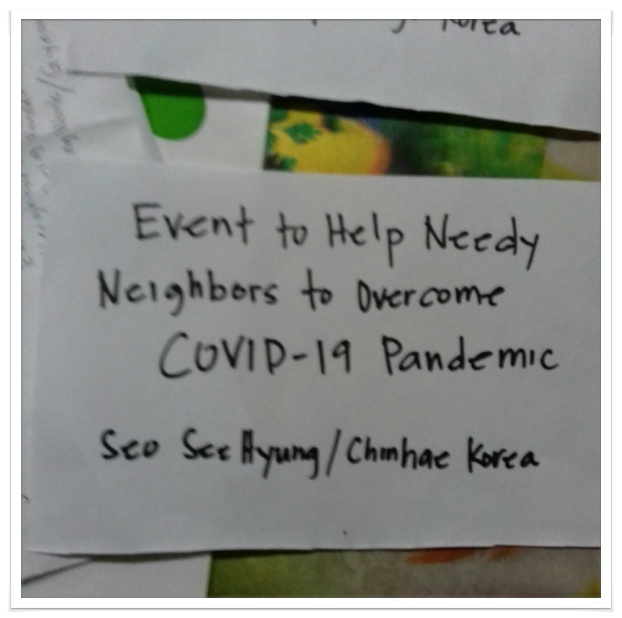 Korea
Event to Help Needy
Neighbors to Overcome
COVID-19 Pandemic
Seo SeeHyung/Chinhae Korea